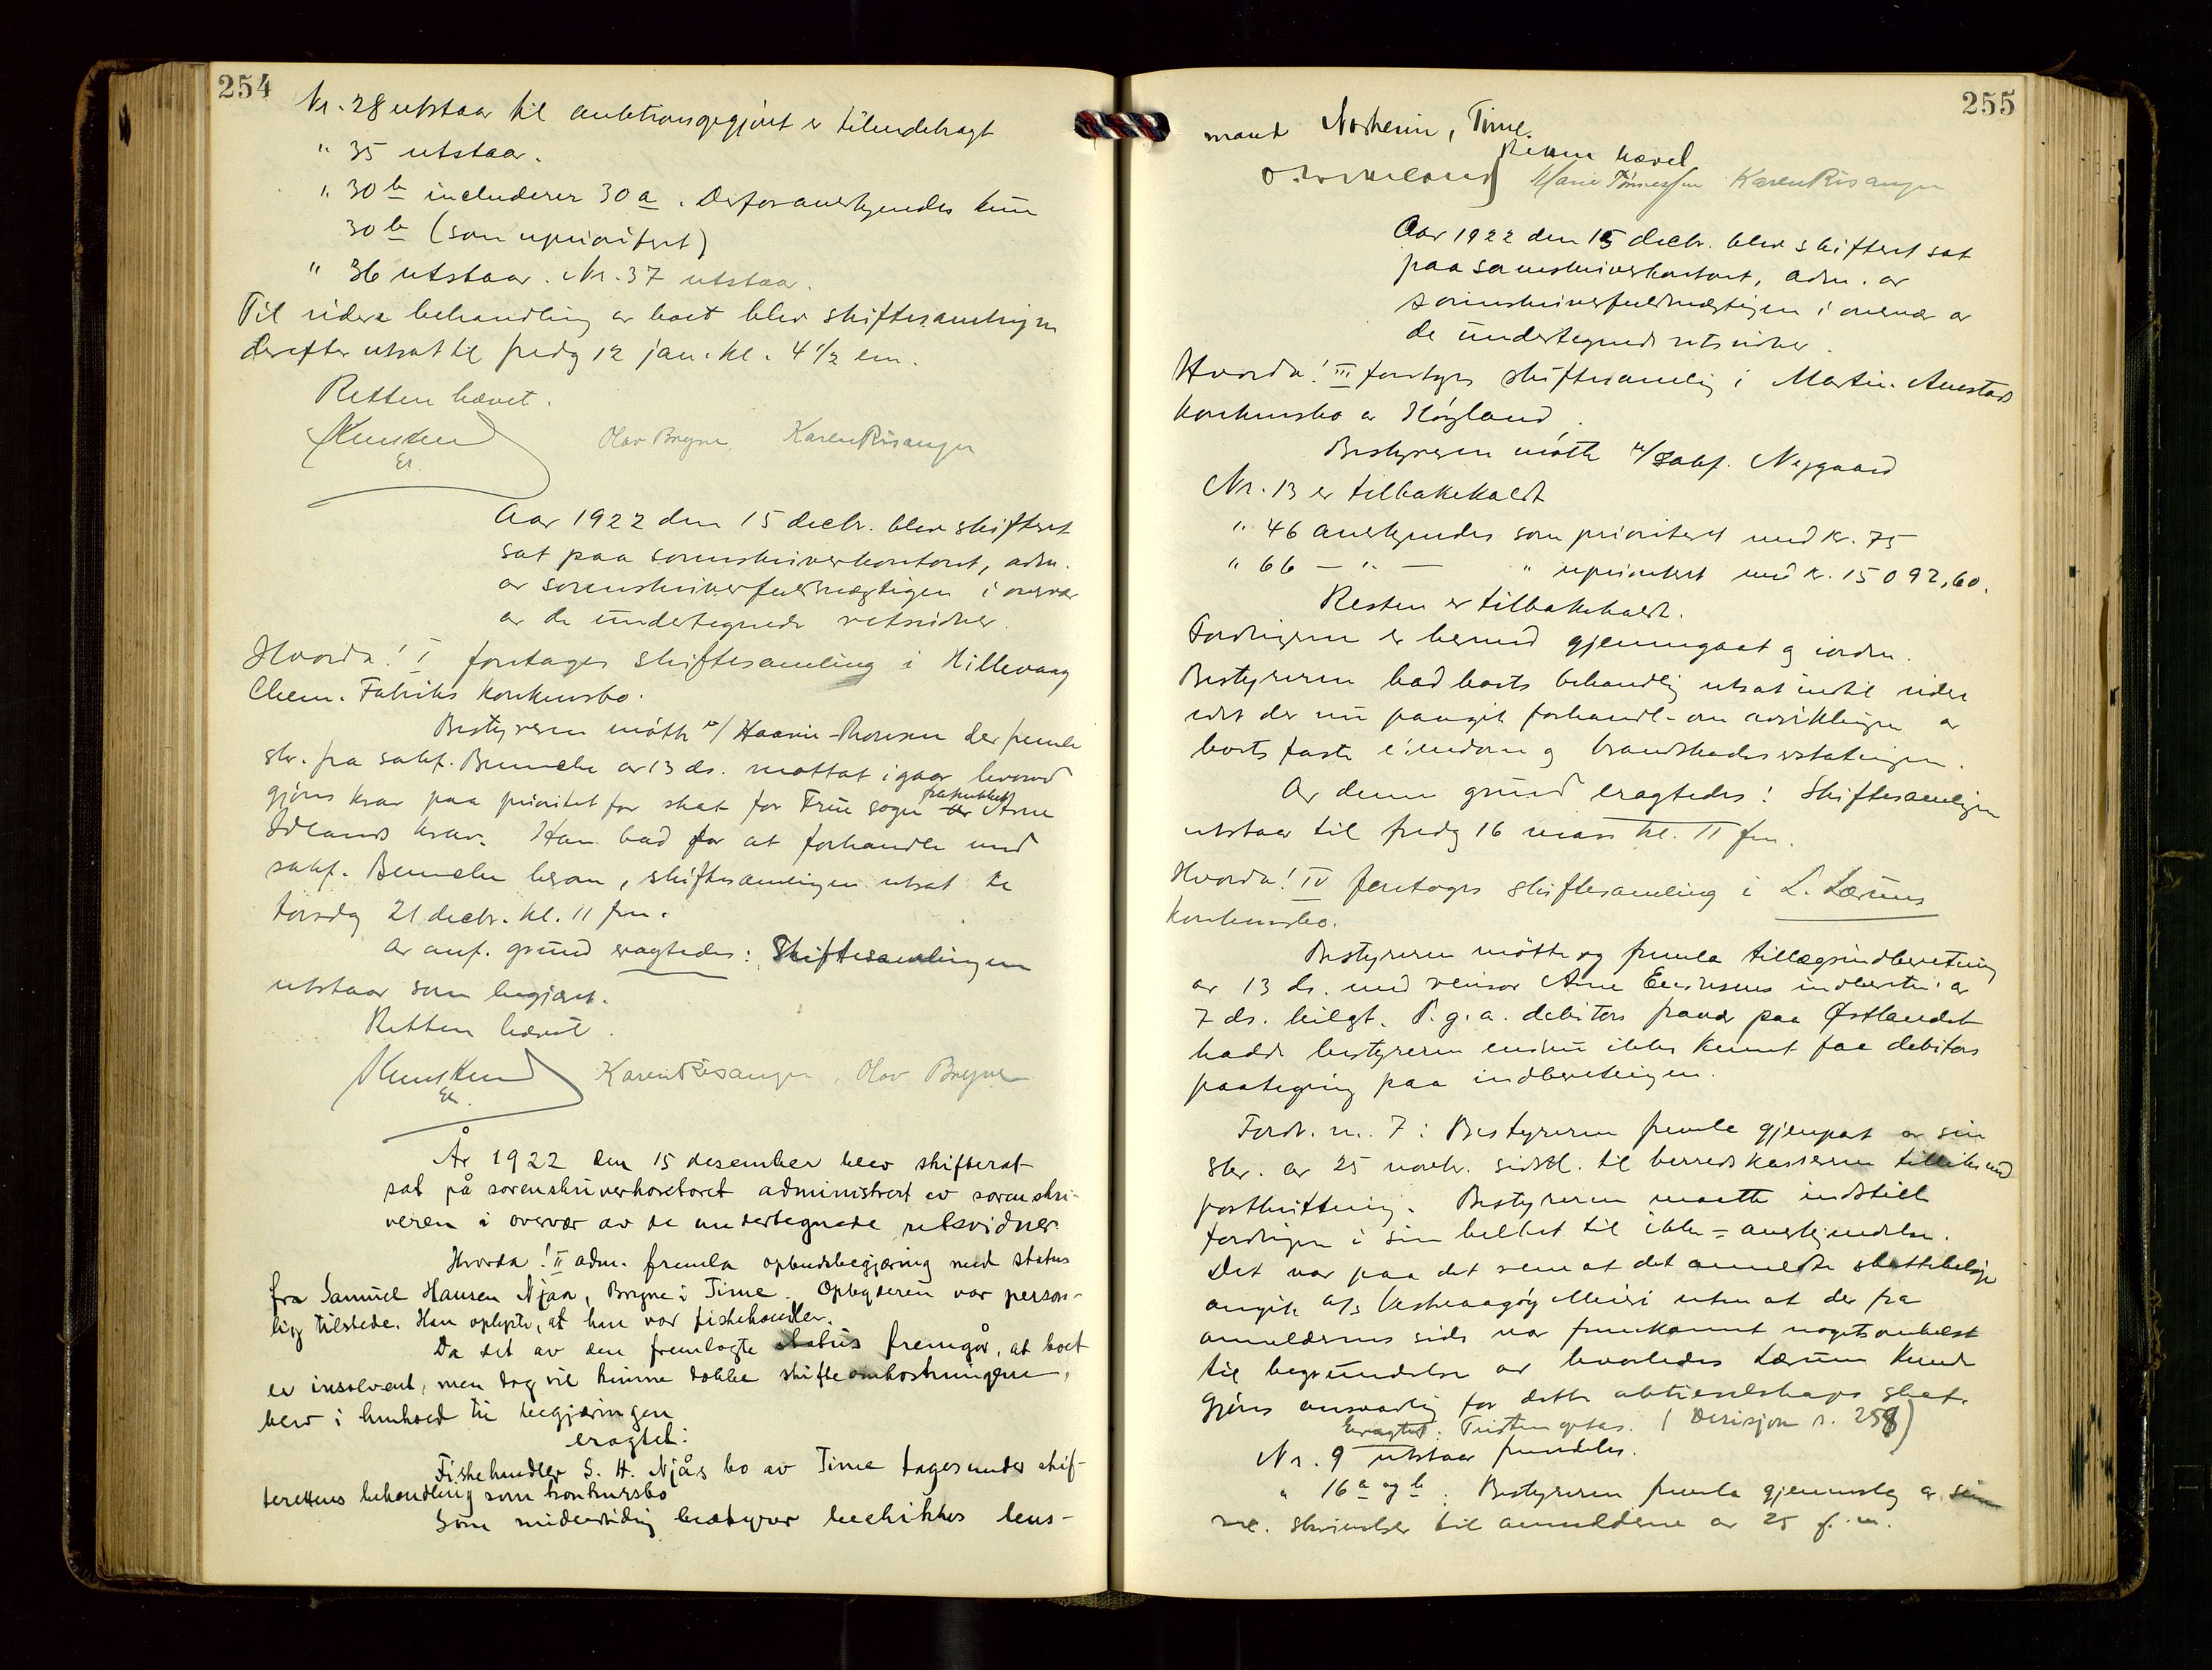 254
Nr. 28 utstaar til auktionsgegjørit er tilendebragt
" 35 utstaar.
" 30 b includerer 30 a. Derfor anerkjendes kun
30 b (som uprioritert)
" 36 utstaar. Nr. 37 utstaar.
Til videre behandling av boet blev skiftesamlingen
derefter utsat til fredg 12 jan. kl. 4 1/2 em.
Retten hævet.
Olav Bryne. Karen Risanger
Aar 1922 den 15 decbr. blev skifteret
sat paa sorenskriverkontoret, adm.
av sorenskriverfuldmægtigen i overvær
av de undertegnede retsvidner.
Hvorda! I foretages skiftesamling i Hillevaag
Chem. Fabriks konkursbo.
Bestyreren møtte v/ der fremla
skr. fra sakf. av 13 ds. mottat igaar hvorved
gjøres krav paa prioritet for skat for Frue sogn fratrukket Arne
Idlands krav. Han bad for at forhandle med
sakf. herom, skiftesamlingen utsat til
torsdg 21 decbr. kl. 11 fm.
Av anf. grund eragtedes: Skiftesamlingen
utstaar som begjært.
Retten hævet.
Karen Risanger, Olav Bryne
År 1922 den 15 desember blev skifteret
sat på sorenskriverkontoret administrert av sorenskri-
veren i overvær av de undertegnede retsvidner.
Hvorda! II adm. fremla opbudsbegjæring med status
fra Samuel Hansen Njaa, Bryne i Time. Opbyderen var person-
lig tilstede. Han oplyste, at han var fiskehandler.
Da det av den fremlagte status fremgår, at boet
er insolvent, men dog vil kunne dække skifteomkostningene,
blev i henhold til begjæringen
eragtet:
Fiskehandler S. H. Njås bo av Time tages under skif-
terettens behandling som konkursbo
Som midlertidig bestyrer beskikkes lens-
255
mand Norheim, Time.
Retten hævet
Marie Tønnessen Karen Risanger
Aar 1922 den 15 decbr. blev skifteret sat
paa sorenskriverkontoret, adm. av
sorenskriverfuldmægtigen i overvær av
de undertegnede retsvidner.
Hvorda! III foretages skiftesamling i Martin Auestads
konkursbo av Høyland.
Bestyreren møtte v/ sakf. Nygaard
Nr. 13 er tilbakekaldt
" 46 anerkjendes som prioritert med kr. 75
" 66 — " — " uprioritert med kr. 15092,60.
Resten er tilbakekaldt.
Fordringene er hermed gjennemgaat og iorden.
Bestyreren bad boets behandling utsat indtil videre
idet der nu paagik forhandl. om avviklingen av
boets faste eiendom og brandskadeserstatningen.
Av denne grund eragtedes: Skiftesamlingen
utstaar til fredg 16 mars kl. 11 fm.
Hvorda! IV foretages skiftesamling i L. Lærums
konkursbo.
Bestyreren møtte og fremla tillægsindberetning
av 13 ds. med revisor Arne indberetn. av
7 ds. bilagt. P. g. a. debitors fravær paa Østlandet
hadde bestyreren endnu ikke kunnet faa debitors
paategning paa indberetningen.
Fordr. nr. 7: Bestyreren fremla gjenpart av sin
skr. av 25 novbr. sidstl. til herredskassereren tillikemed
postkvittering. Bestyreren maatte indstille
fordringen i sin helhet til ikke-anerkjendelse.
Det var paa det rene at det anmeldte skattebeløp
angik A/S Meieri uten at der fra
anmelderens side var fremkommet nogetsomhelst
til begrundelse av hvorledes Lærum kunde
gjøres ansvarlig for dette aktieselskaps skat.
Eragtet: Tvisten optas. (Decisjon s. 258)
Nr. 9 utstaar fremdeles.
" 16 a og b: Bestyreren fremla gjennemslag av sin
rec. skrivelser til anmelderne av 25 f. m.